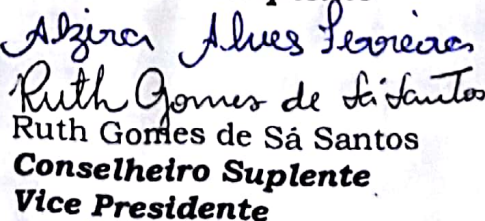 Alzira Alves Ferreira
Ruth Gomes de Sá Santos
Ruth Gomes de Sá Santos
Conselheiro Suplente
Vice Presidente